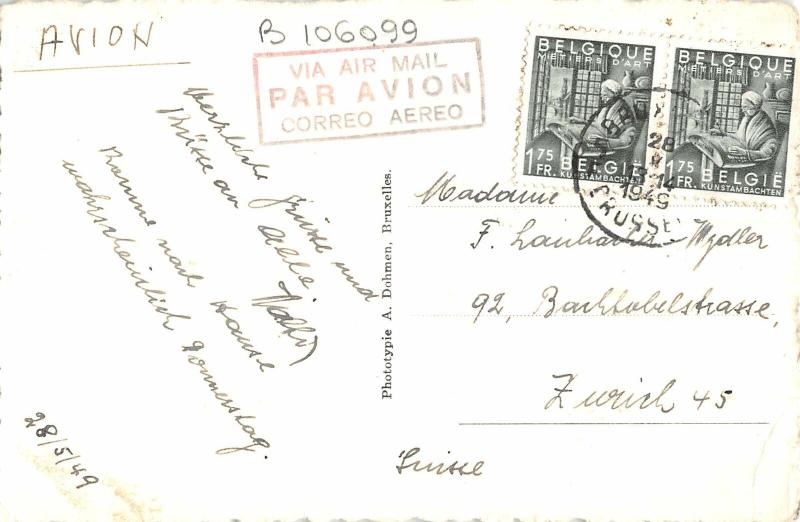 AVION
B 106099
VIA AIR MAIL
PAR AVION
CORREO AEREO
BELGIQUE
METIERS D'ART
1.75 FR.
BELGIË
KUNSTAMBACHTEN
BELGIQUE
METIERS D'ART
1.75 FR.
BELGIË
KUNSTAMBACHTEN
28
13-14
1949
Herzliche Grüsse und
Küsse an alle.
Komme nach Hause
wahrscheinlich Donnerstag.
28/5/49
Phototypie A. Dohmen, Bruxelles.
Madame
F. Wydler
92, Bachtobelstrasse,
Zurich 45
Suisse